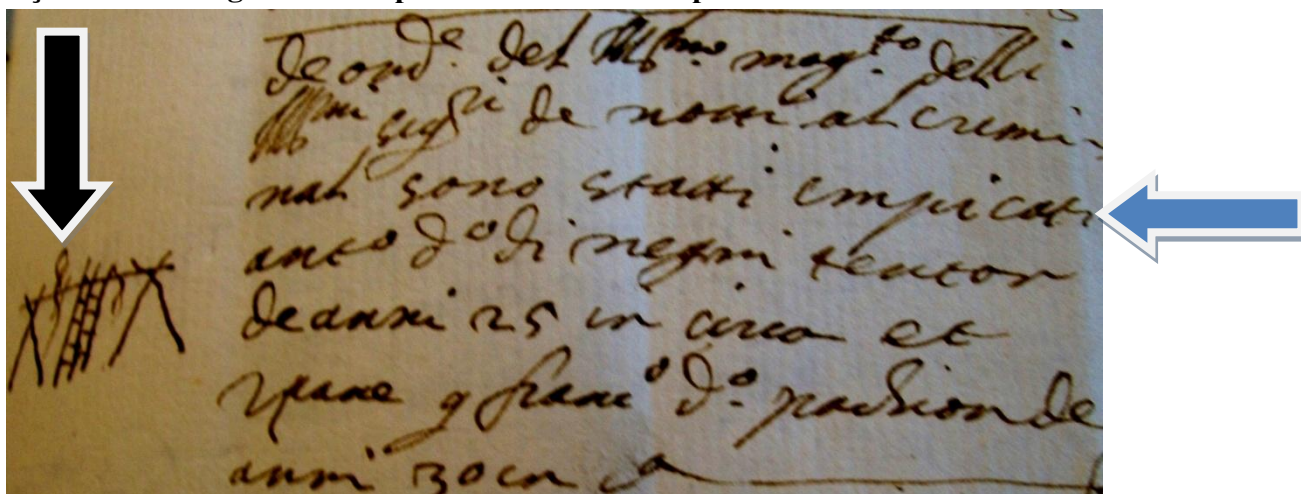 de ord.e del Ill.mo mag.to delli
Ill.mi sig.ri de notte al crimi
nal sono statti impicati
ant.o d.o di negri tentor
de anni 25 in circa et
q franc.o d.o de
anni 30 in c.a